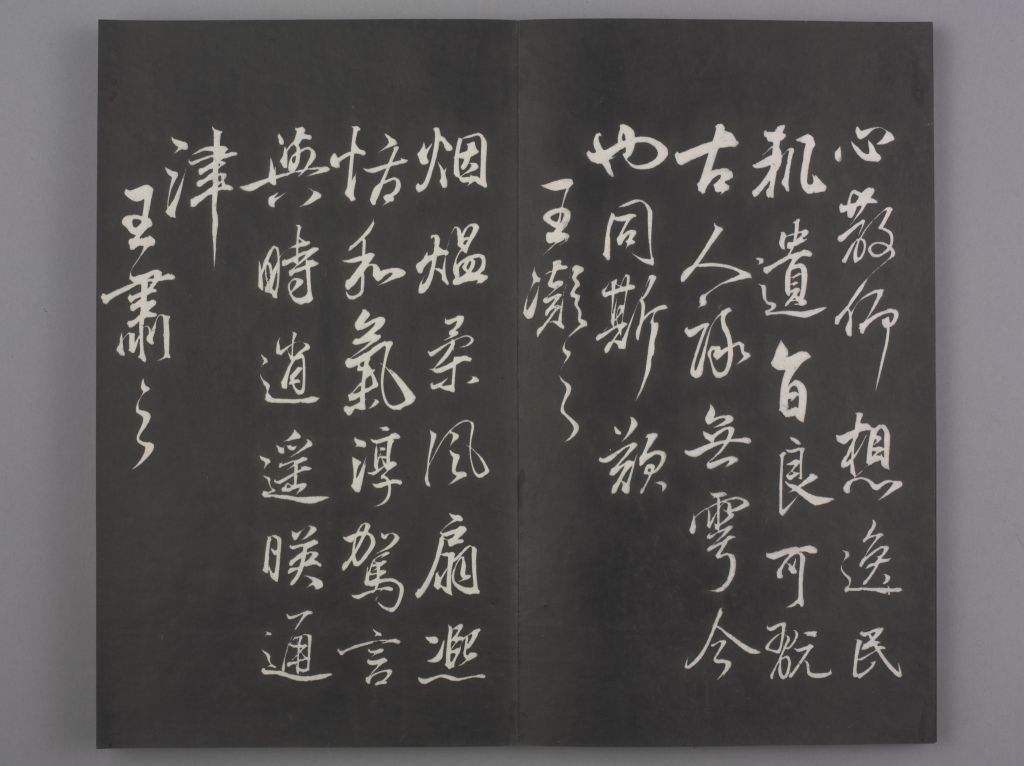 心散仰想逸民
軌遺旨良可翫
古人詠無雩今
也同斯歎
王凝之
烟熅柔風扇熈
怡和氣淳駕言
興時逍遥映通
津
王肅之